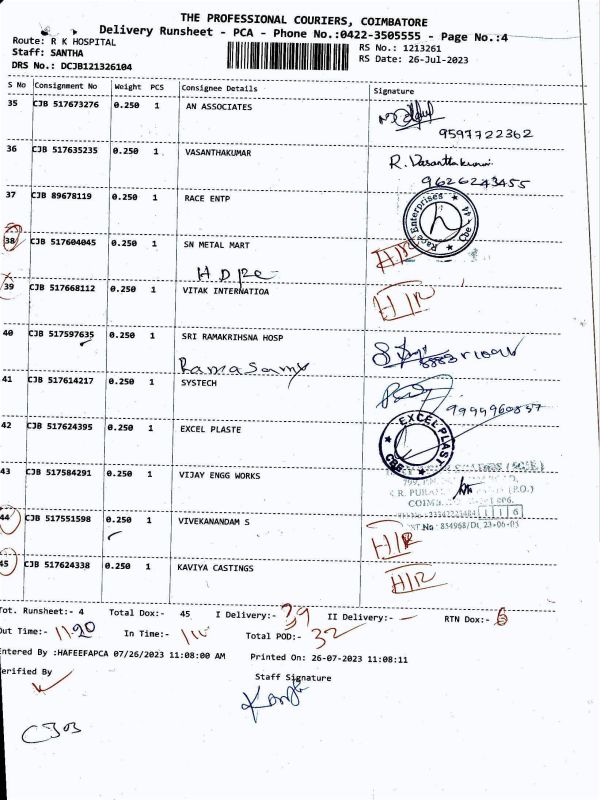 THE PROFESSIONAL COURIERS, COIMBATORE
Delivery Runsheet - PCA - Phone No.:0422-3505555 - Page No.:4
Route: R K HOSPITAL
Staff: SANTHA
DRS No.: DCJB121326104
RS No.: 1213261
RS Date: 26-Jul-2023
S No Consignment No Weight PCS Consignee Details Signature
35 CJB 517673276 0.250 1 AN ASSOCIATES
9597722362
36 CJB 517635235 0.250 1 VASANTHAKUMAR R. Vasanthakumar
9626243455
37 CJB 89678119 0.250 1 RACE ENTP Race Enterprises Cbe 44
38 CJB 517604045 0.250 1 SN METAL MART
39 CJB 517668112 0.250 1 VITAK INTERNATIOA H/R
40 CJB 517597635 0.250 1 SRI RAMAKRIHSNA HOSP
Ramasamy
41 CJB 517614217 0.250 1 SYSTECH
42 CJB 517624395 0.250 1 EXCEL PLASTE EXCEL PLAST CBE
43 CJB 517584291 0.250 1 VIJAY ENGG WORKS
116
44 CJB 517551598 0.250 1 VIVEKANANDAM S H/R
45 CJB 517624338 0.250 1 KAVIYA CASTINGS H/R
Tot. Runsheet:- 4 Total Dox:- 45 I Delivery:- 39 II Delivery:- - RTN Dox:- 6
Out Time:- 11.20 In Time:- Total POD:- 32
Entered By :HAFEEFAPCA 07/26/2023 11:08:00 AM Printed On: 26-07-2023 11:08:11
erified By Staff Signature